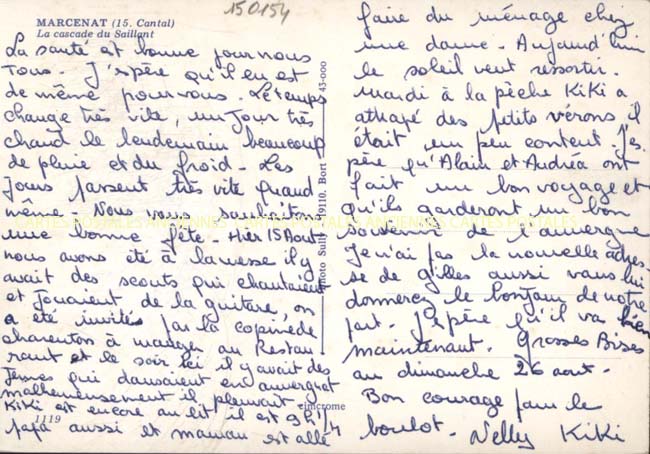 150154
MARCENAT (15. Cantal)
La cascade du Saillant
La santé est bonne pour nous
Tous. J'espère qu'il en est
de même pour vous. Le temps
change très vite, un jour très
chaud le lendemain beaucoup
de pluie et du froid. Les
Jours passent très vite quand
même. Nous vous souhaitons
une bonne fête. Hier 15 Aout
nous avons été à la messe il y
avait des scouts qui chantaient
et Jouaient de la guitare, on
a été invités par la copine de
charenton à manger au Restau
rant et le soir ici il y avait des
Jeunes qui dansaient en auvergnat
malheureusement il pleuvait.
KiKi est encore au lit il est 9h 1/4
papa aussi et maman est allé
1119
faire du ménage chez
une dame. Aujourd'hui
le soleil veut ressortir.
mardi à la pèche KiKi a
attrapé des petits vérons, il
était un peu content. J'es
père qu'Alain et Andréa ont
fait un bon voyage et
qu'ils garderont un bon
souvenir de l'auvergne
Je n'ai pas la nouvelle adres-
se de gilles aussi vous lui
donnerez le bonjour de notre
part. J'espère qu'il va bien
maintenant. Grosses Bises
au dimanche 26 aout.
Bon courage pour le
boulot. Nelly KiKi
Photo Sully 19110. Bort 43-000
cimcrome
CARTES POSTALES ANCIENNES CARTES POSTALES ANCIENNES CARTES POSTALES